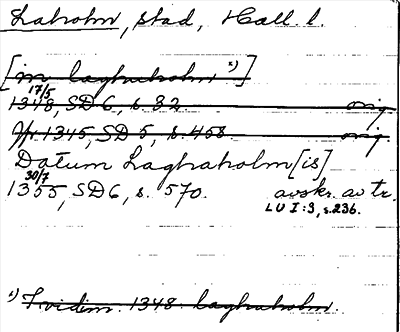 Laholm, stad, Hall. l.
[in laghaholm ¹)]
17/5
1348, SD 6, s. 32. orig.
1345, SD 5, s. 458. orig.
Datum Laghaholm [is]
30/7
1355, SD 6, s. 570. avskr. av tr.
LU I:3, s. 236.
¹) T. vidim. 1348 laghaholm.